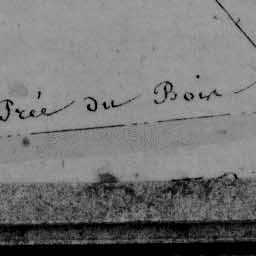 Prée du Bois